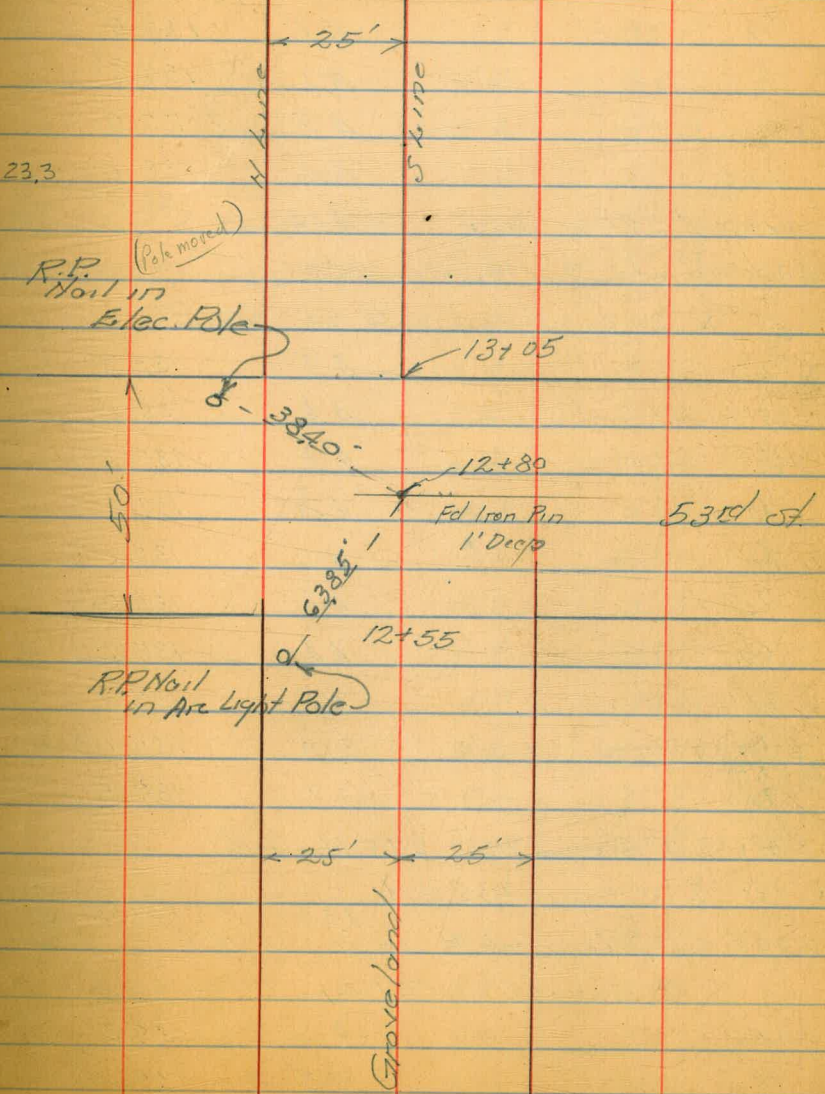 25'
N Line
S Line
23.3
(Pole moved)
R.P.
Nail in
Elec. Pole
13+05
38.40
12+80
50'
Fd Iron Pin
1' Deep
53rd St.
63.85
12+55
R.P. Nail
in Arc Light Pole
25' 25'
Groveland